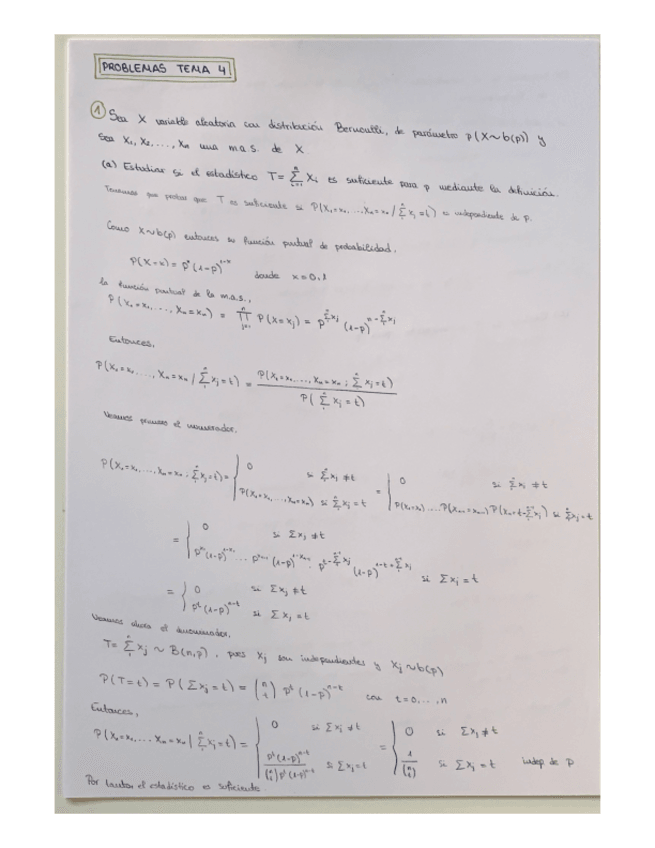 PROBLEMAS TEMA 4
① Sea X variable aleatoria con distribución Bernoulli, de parámetro p (X~b(p)) y
sea X₁, X₂, ..., Xₙ una m.a.s. de X
(a) Estudiar si el estadístico T= ∑ᵢ₌₁ⁿ Xᵢ es suficiente para p mediante la definición.
Tenemos que probar que T es suficiente si P(X₁=x₁, ..., Xₙ=xₙ / ∑₁ⁿ Xⱼ=t) es independiente de p.
Como X~b(p) entonces su función puntual de probabilidad.
P(X=x) = pˣ (1-p)¹⁻ˣ donde x=0,1
la función puntual de la m.a.s.,
P(X₁=x₁, ..., Xₙ=xₙ) = ∏ⱼ₌₁ⁿ P(X=xⱼ) = p^{∑xⱼ} (1-p)^{n-∑xⱼ}
Entonces,
P(X₁=x₁, ..., Xₙ=xₙ / ∑₁ⁿ Xⱼ=t) = P(X₁=x₁, ..., Xₙ=xₙ ; ∑₁ⁿ Xⱼ=t) / P(∑₁ⁿ Xⱼ=t)
Veamos primero el numerador.
P(X₁=x₁, ..., Xₙ=xₙ ; ∑₁ⁿ Xⱼ=t) = { 0 si ∑xⱼ ≠t = { 0 si ∑xⱼ ≠t
P(X₁=x₁, ..., Xₙ=xₙ) si ∑xⱼ=t P(X₁=x₁) ... P(Xₙ₋₁=xₙ₋₁) P(Xₙ=t-∑xⱼ) si ∑xⱼ=t
= { 0 si ∑xⱼ ≠t
p^{x₁}(1-p)^{1-x₁} ... p^{xₙ₋₁}(1-p)^{1-xₙ₋₁} p^{t-∑xⱼ} (1-p)^{1-t+∑xⱼ} si ∑xⱼ = t
= { 0 si ∑xⱼ ≠t
pᵗ(1-p)ⁿ⁻ᵗ si ∑xⱼ = t
Veamos ahora el denominador.
T= ∑₁ⁿ Xⱼ ~ B(n,p), pues Xⱼ son independientes y Xⱼ~b(p)
P(T=t) = P(∑Xⱼ=t) = (n t) pᵗ (1-p)ⁿ⁻ᵗ con t=0,...,n
Entonces,
P(X₁=x₁, ... Xₙ=xₙ | ∑₁ⁿ Xⱼ=t) = { 0 si ∑xⱼ ≠t = { 0 si ∑xⱼ ≠t
pᵗ(1-p)ⁿ⁻ᵗ / (n t) pᵗ(1-p)ⁿ⁻ᵗ si ∑xⱼ=t 1 / (n t) si ∑xⱼ = t indep de p
Por tanto el estadístico es suficiente.